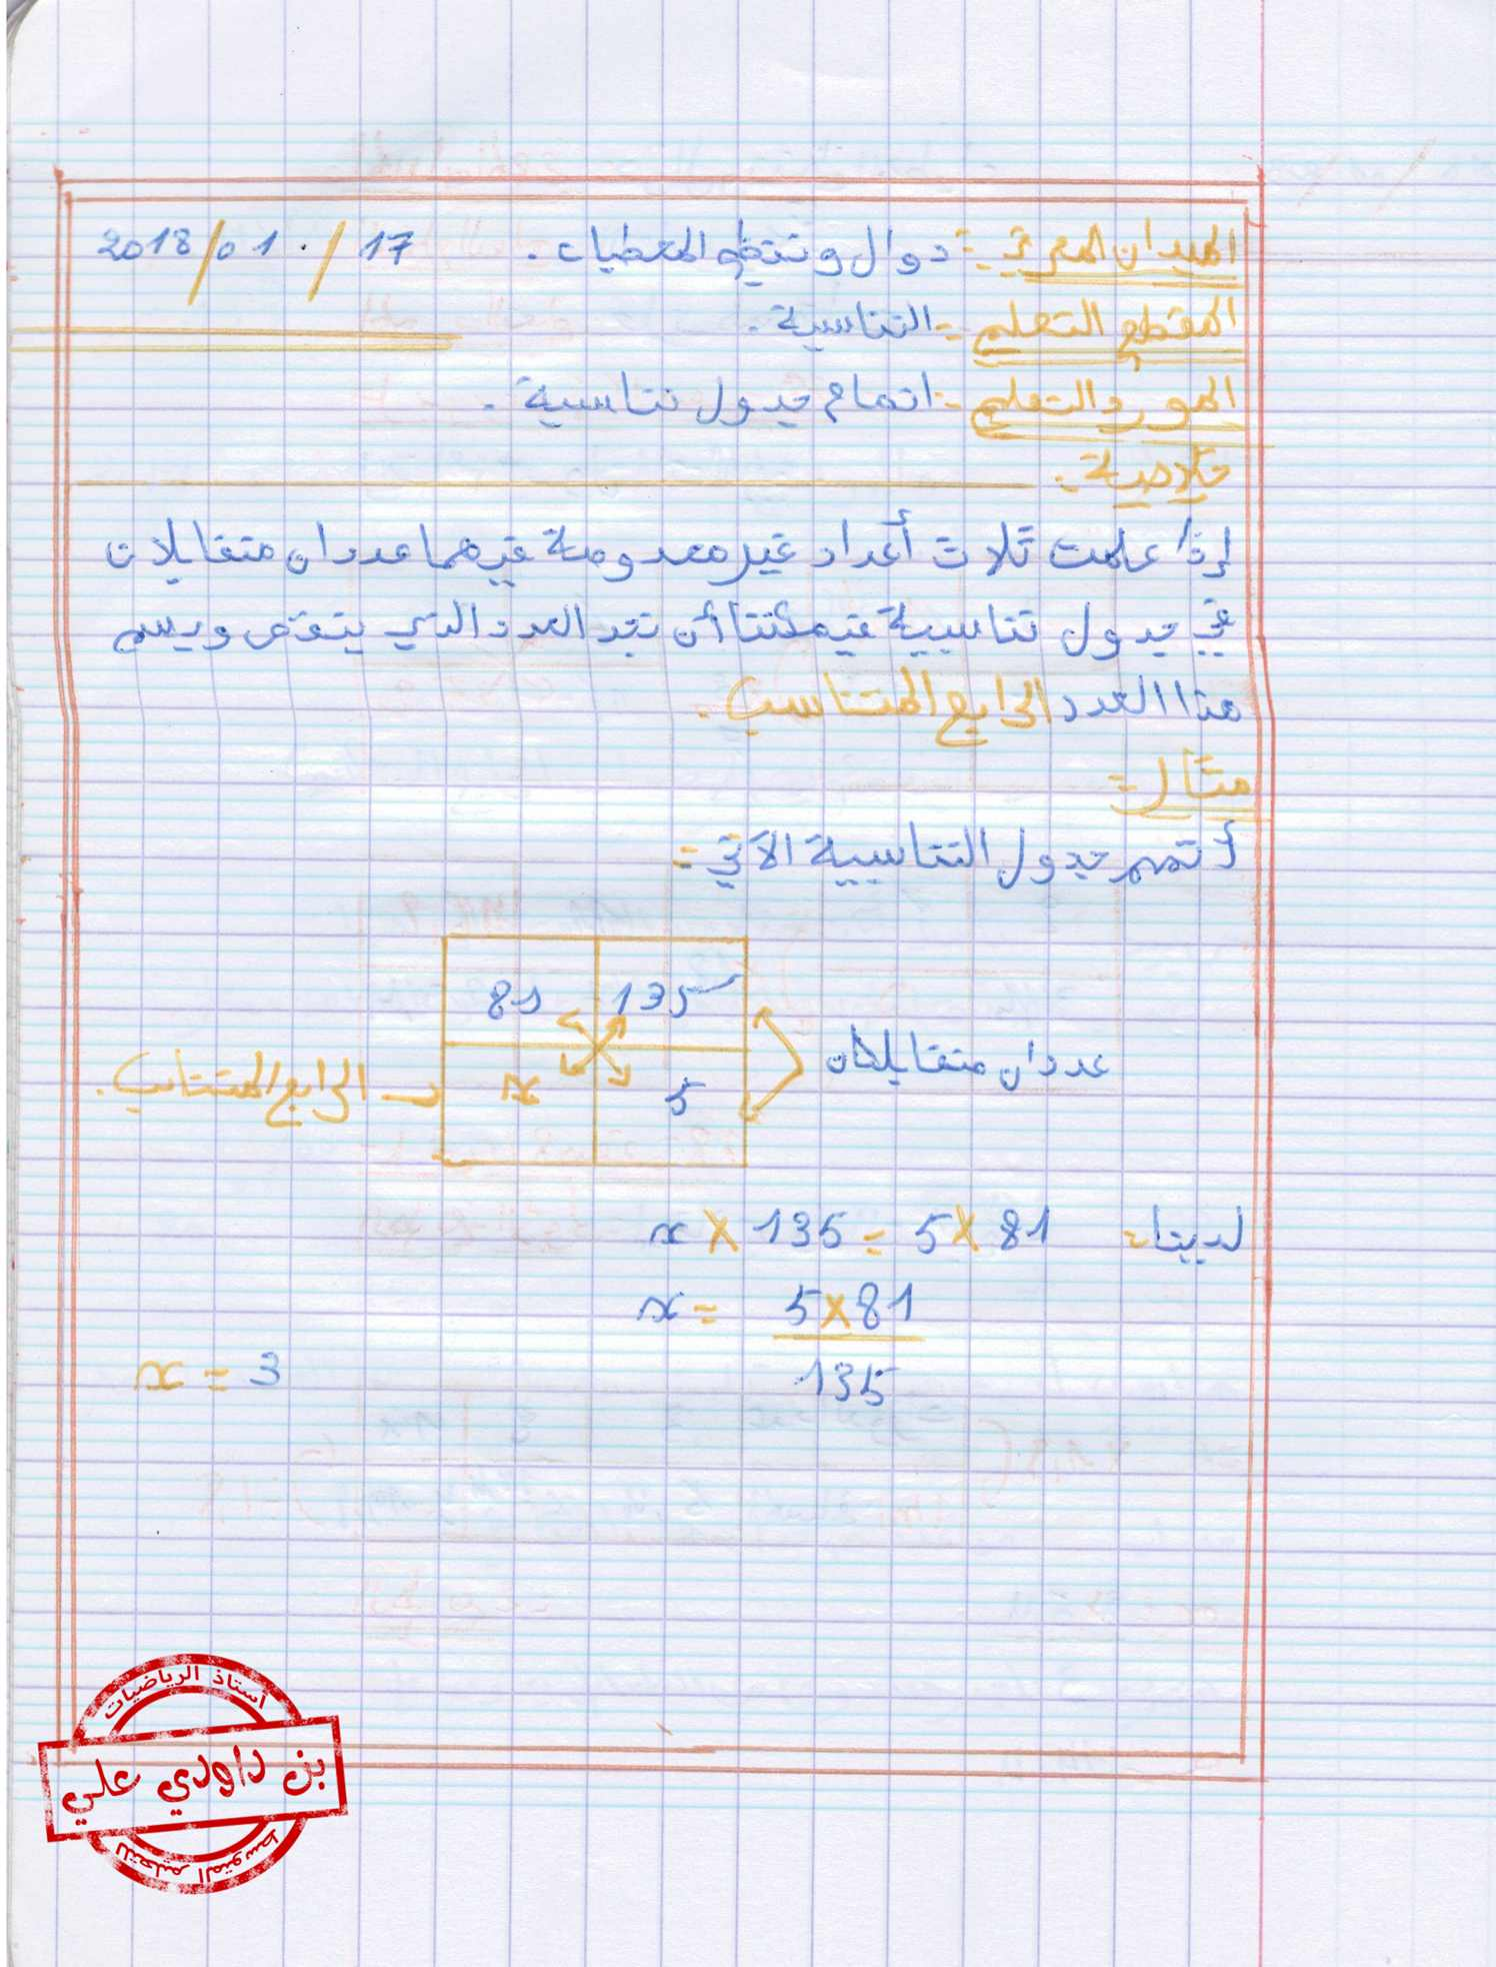 الميدان المعرفي : دوال وتنظيم المعطيات . 17 / 01 / 2018
المقطع التعلمي :- التناسبية .
المورد التعلمي :- اتمام جدول تناسبية .
خلاصة :
إذا علمت ثلاث أعداد غير معدومة فيهما عددان متقابلان
في جدول تناسبية فيمكننا أن نجد العدد الذي ينقص ويسم
هذا العدد الرابع المتناسب .
مثال :-
أتمم جدول التناسبية الآتي :-
81 135
عددان متقابلان
x 5
الرابع المتناسب .
لدينا : x × 135 = 5 × 81
x = 5 × 81
135
x = 3
أستاذ الرياضيات
بن داودي علي
للتعليم المتوسط